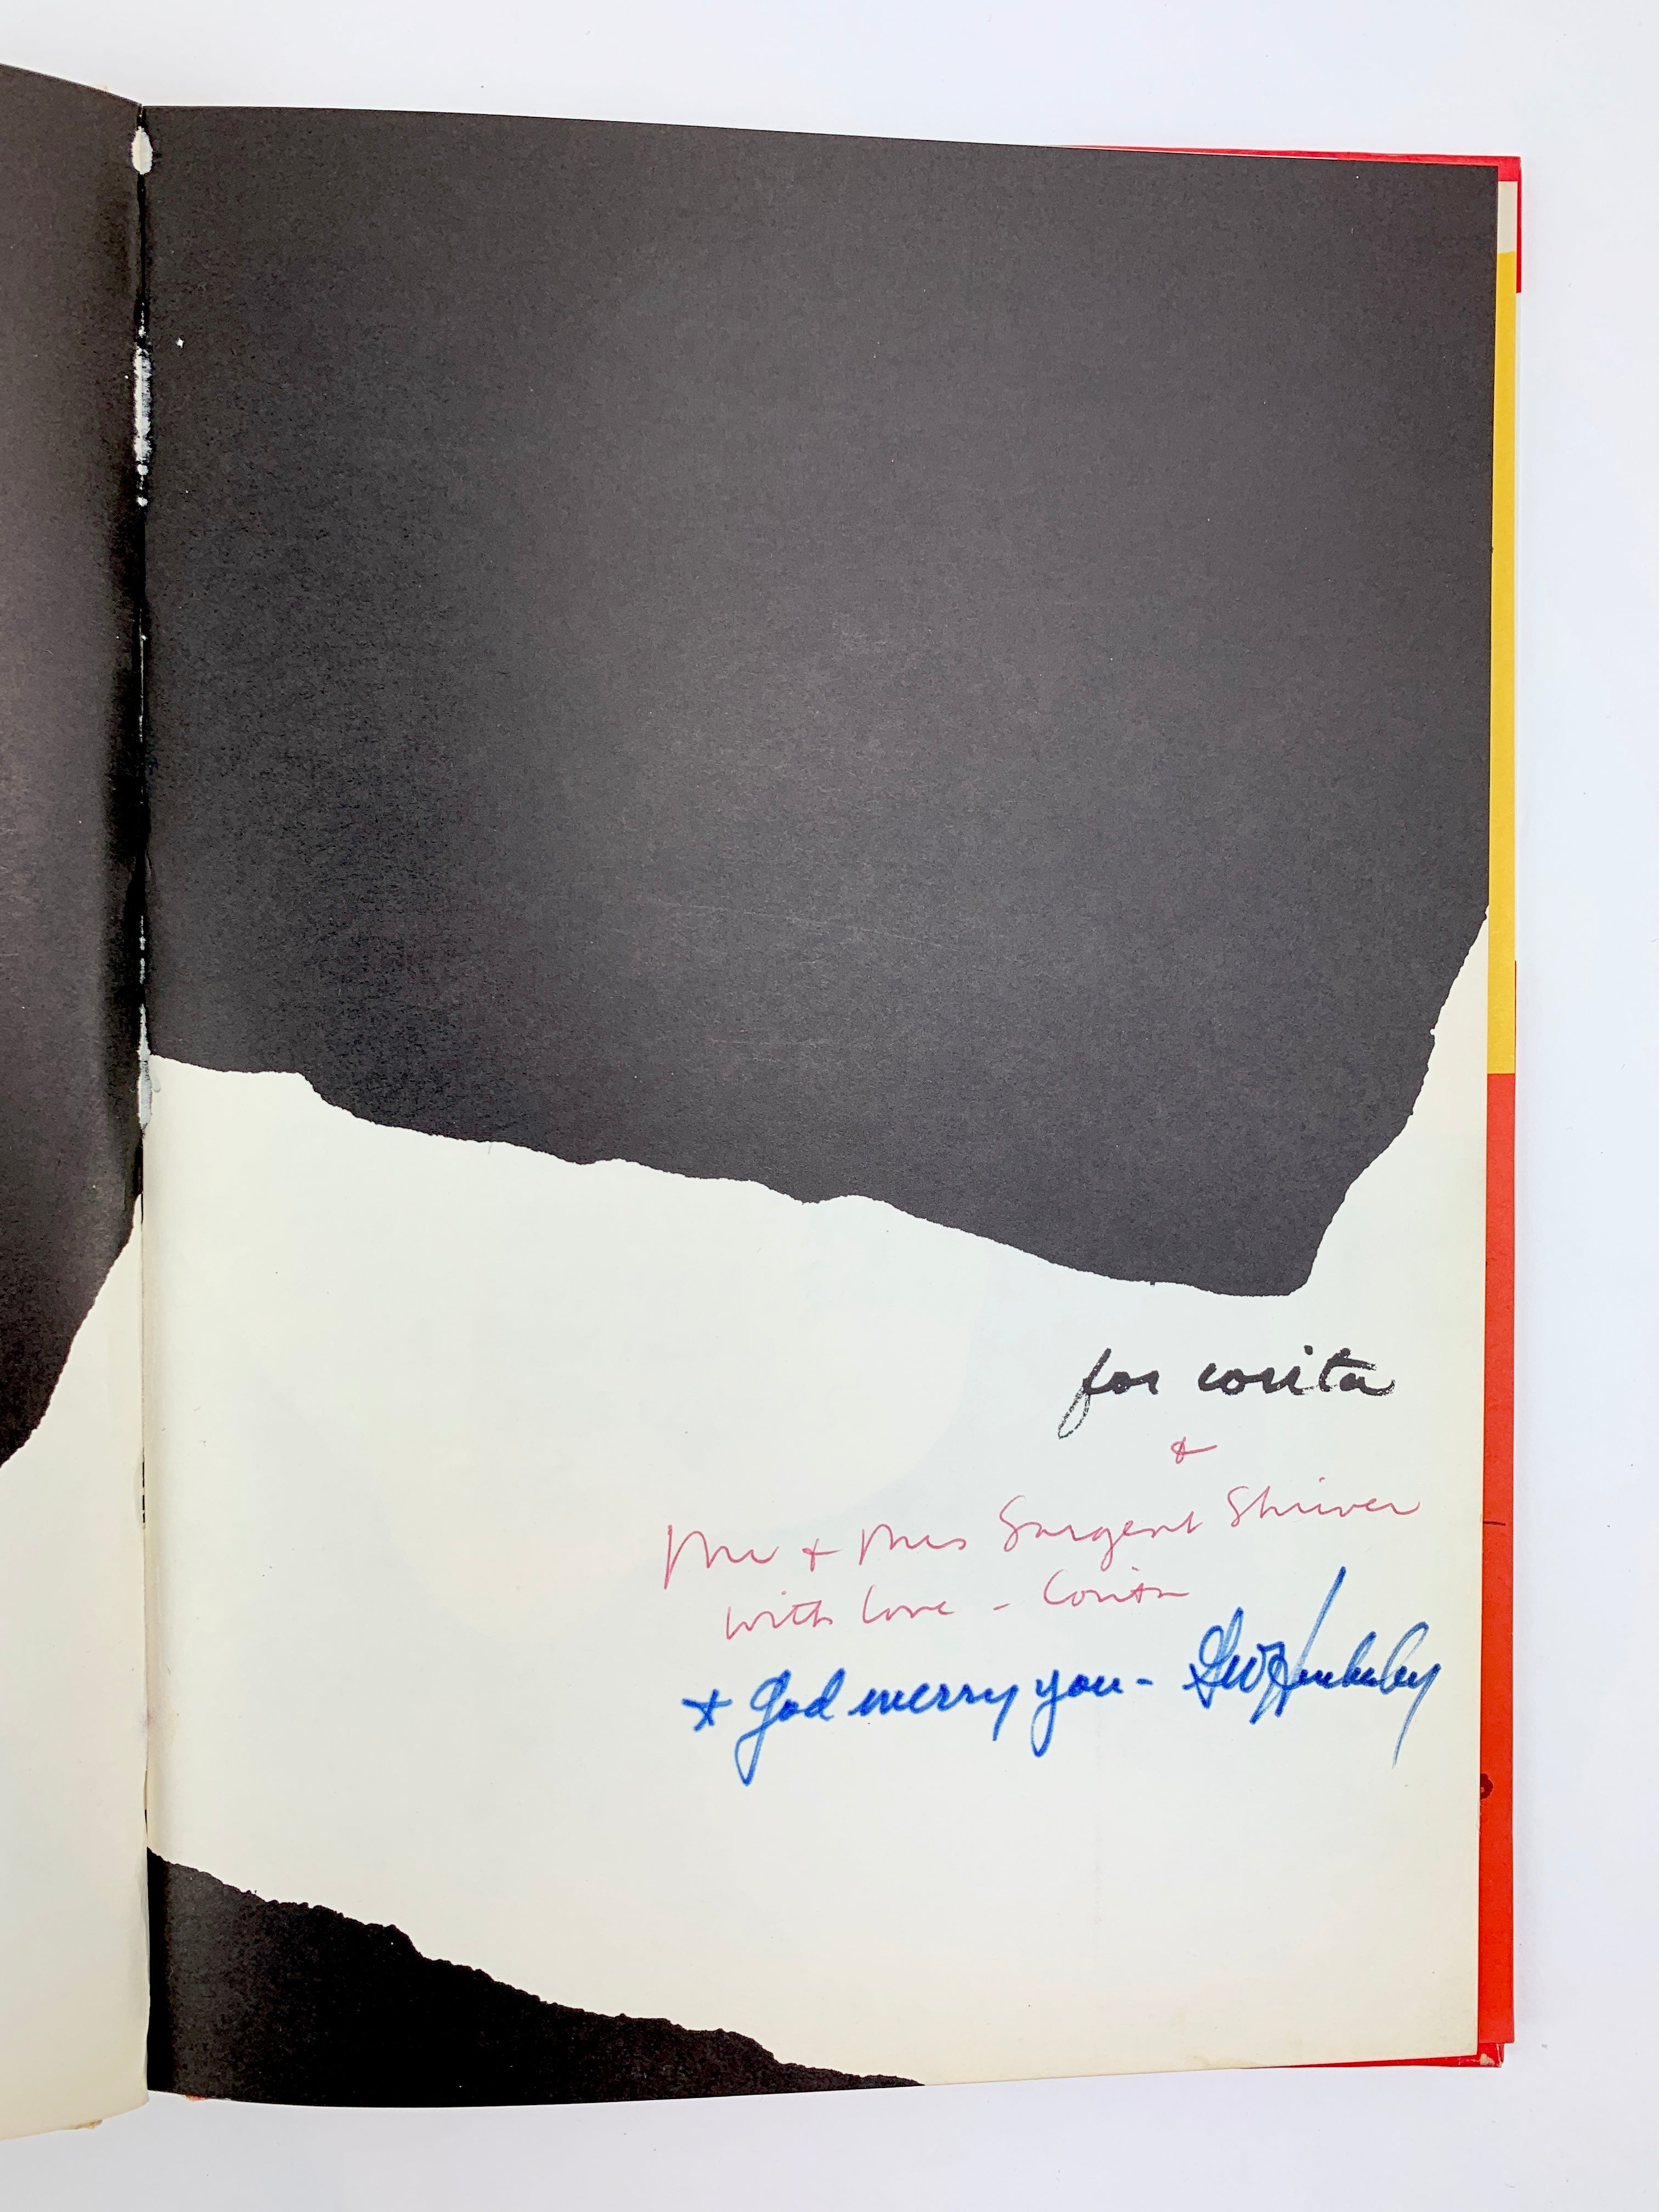 for corita
&
Mr + Mrs Sargent Shriver
with love - Corita
+ God merry you -